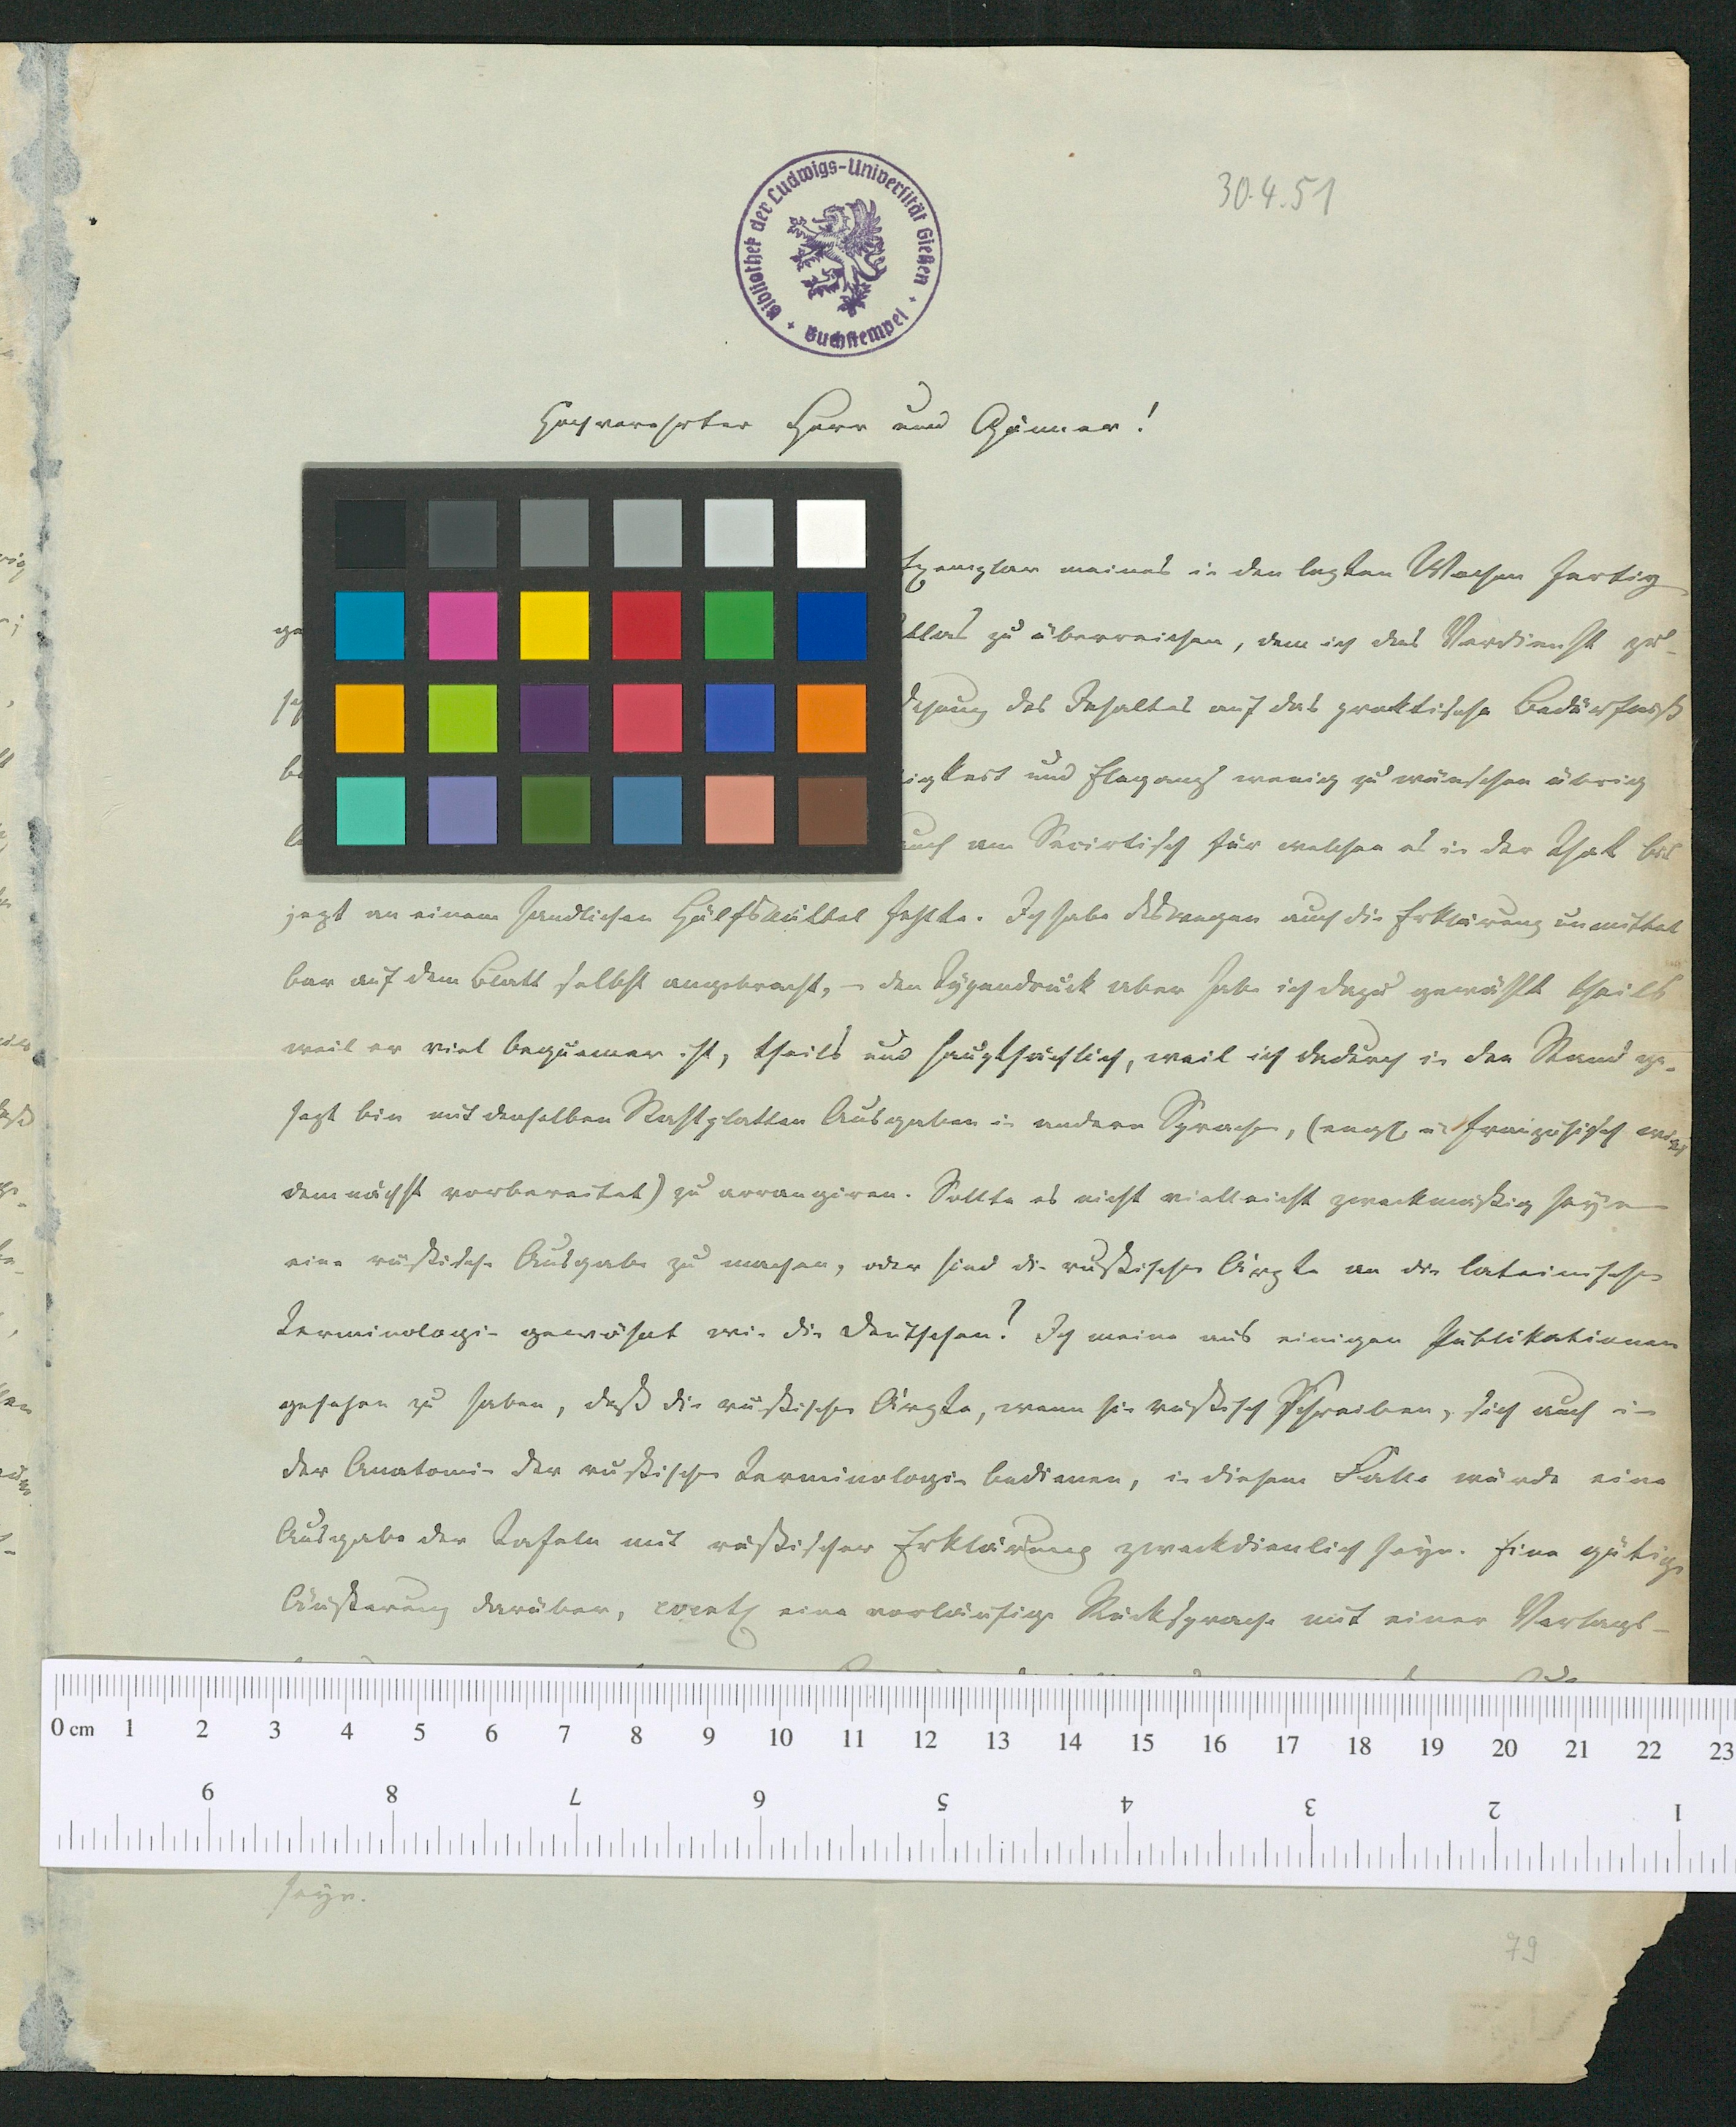 Bibliothek der Ludwigs-Universität Gießen
Buchstempel
30.4.51
Hochverehrter Herr und Gönner!
Exemplar meines in den lezten Wochen fertig
ge
tlas zu überreichen, dem ich das Verdienst zu-
sch
dehnung des Inhaltes auf das praktische Bedürfniß
be
igkeit und Eleganz wenig zu wünschen übrig
la
auch am Secirtisch für welchen es in der That bis
jezt an einem handlichen Hülfsmittel fehlte. Ich habe deswegen auch die Erklärung unmittel
bar auf dem Blatt selbst angebracht, – den Typendruck aber habe ich dazu gewählt theils
weil er viel bequemer ist, theils und hauptsächlich, weil ich dadurch in den Stand ge-
sezt bin mit denselben Stahlplatten Ausgaben in andern Sprachen, (engl. u. französisch wird
demnächst vorbereitet) zu arrangiren. Sollte es nicht vielleicht zweckmäßig seyn
eine russische Ausgabe zu machen, oder sind die russischen Ärzte an die lateinische
Terminologie gewöhnt wie die Deutschen? Ich meine aus einigen Publikationen
gesehen zu haben, daß die russischen Ärzte, wenn sie russisch schreiben, sich auch in
der Anatomie der russischen Terminologie bedienen, in diesem Falle würde eine
Ausgabe der Tafeln mit russischer Erklärung zweckdienlich seyn. Eine gütige
Äußerung darüber, eventl. eine vorläufige Rücksprache mit einer Verlags-
0 cm 1 2 3 4 5 6 7 8 9 10 11 12 13 14 15 16 17 18 19 20 21 22 23
9 8 7 6 5 4 3 2 1
seyn.
79